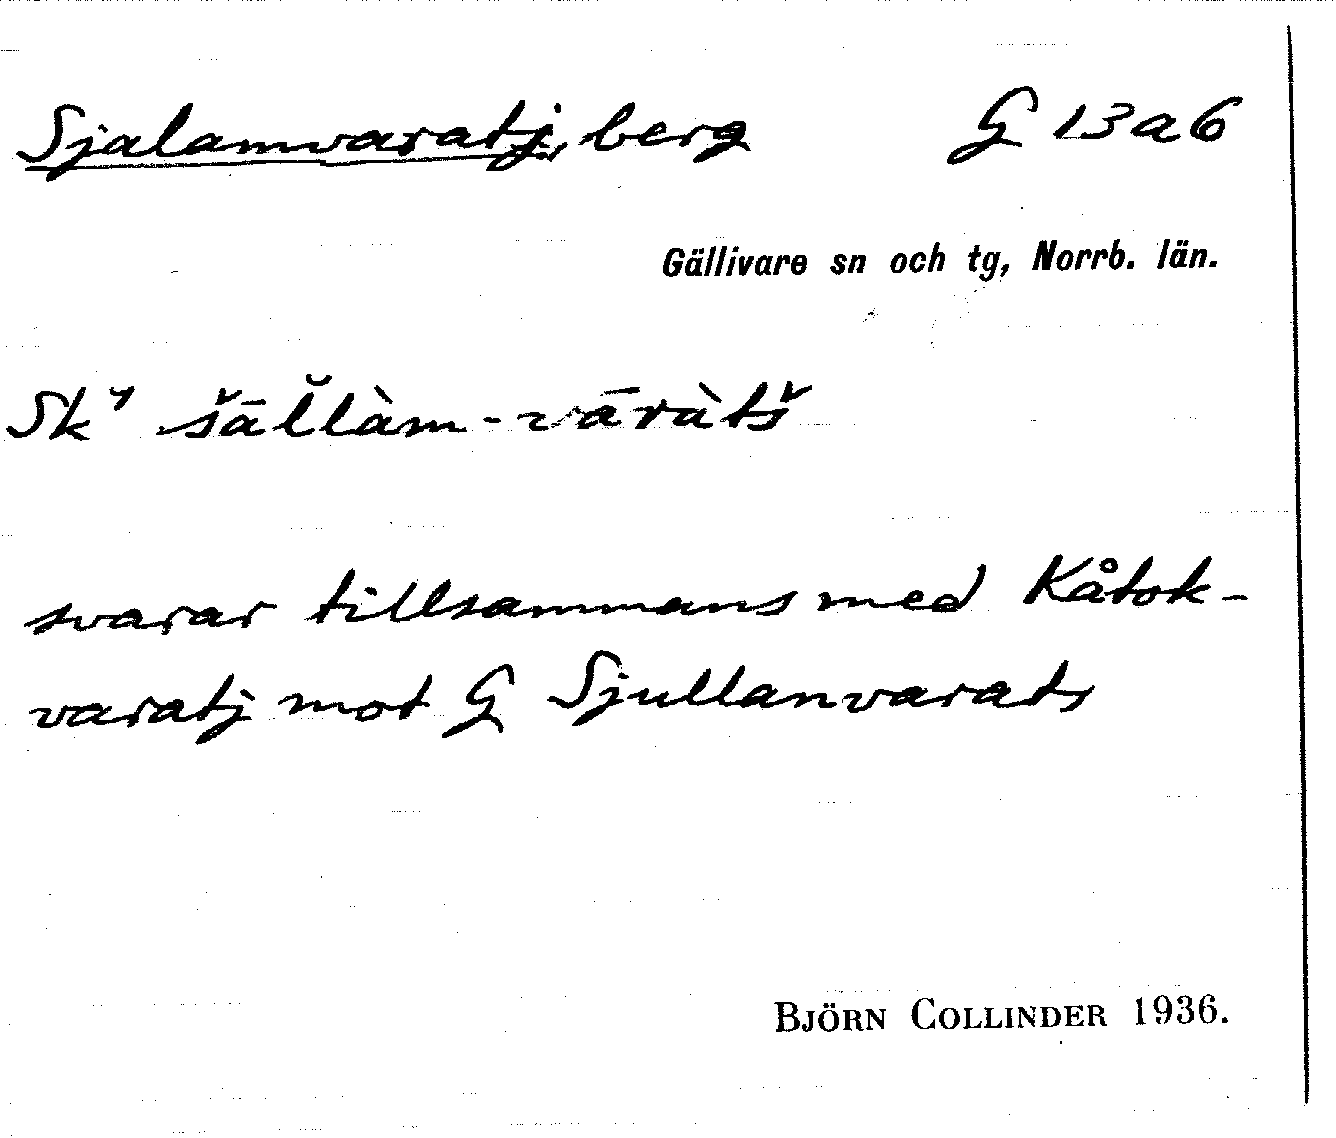 Sjalamvaratj, berg G 13a6
Gällivare sn och tg, Norrb. län.
Sk⁴ šāl̆làm-vāràtš
svarar tillsammans med Kåtok-
varatj mot G Sjullanvarats
BJÖRN COLLINDER 1936.